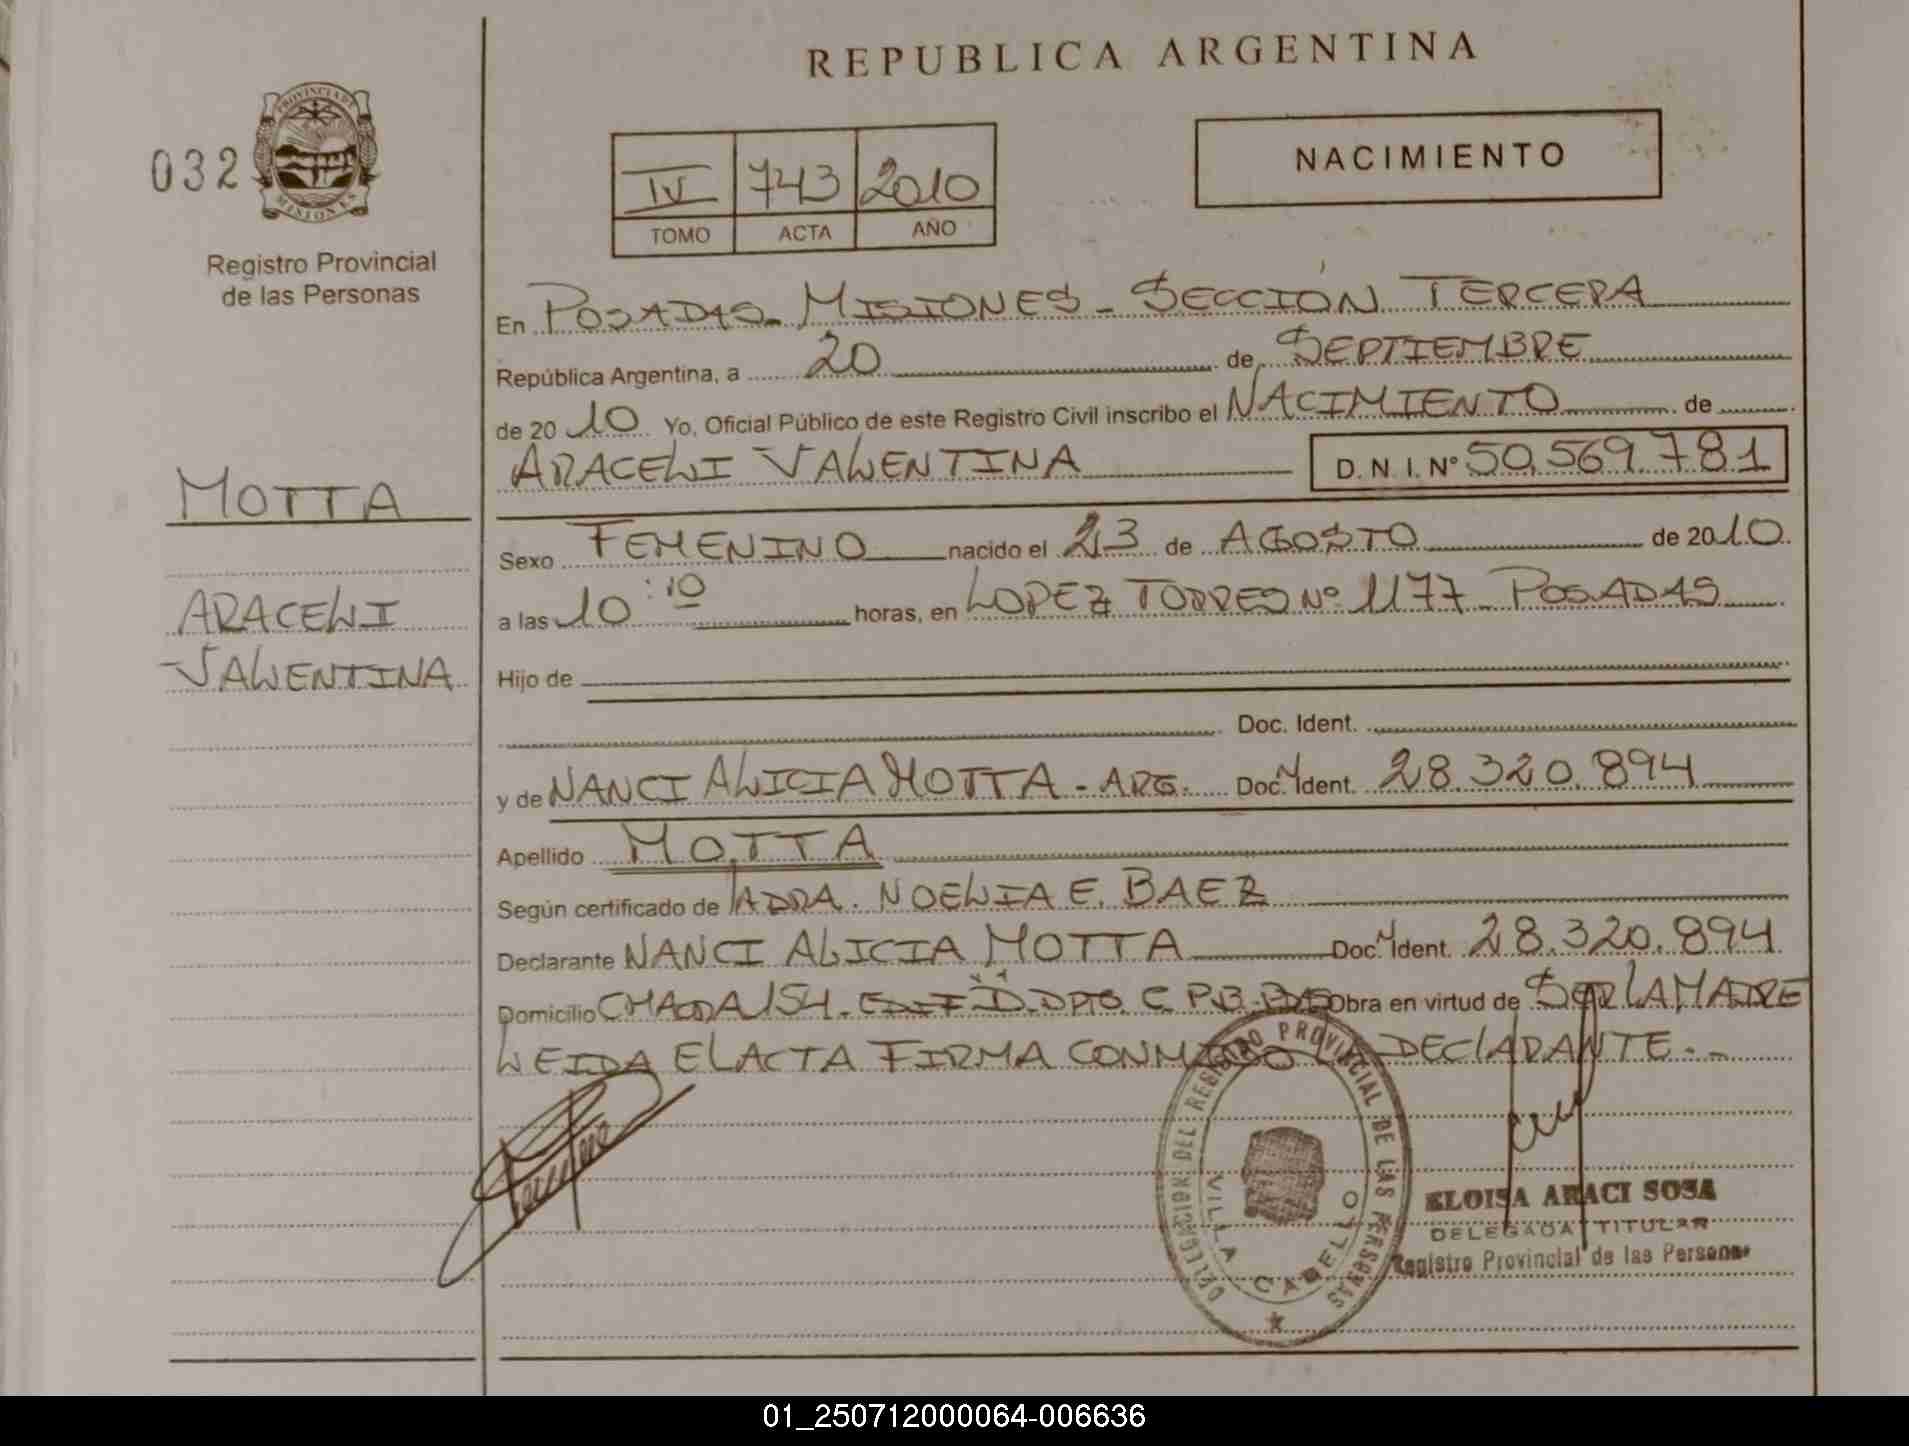 REPUBLICA ARGENTINA
032
PROVINCIA DE MISIONES
Registro Provincial
de las Personas
IV 743 2010
TOMO ACTA AÑO
NACIMIENTO
En POSADAS - MISIONES - SECCIÓN TERCERA
República Argentina, a 20 de SEPTIEMBRE
de 20 10 Yo, Oficial Público de este Registro Civil inscribo el NACIMIENTO de
ARACELI VALENTINA D.N.I. Nº 50.569.781
MOTTA
ARACELI
VALENTINA
Sexo FEMENINO nacido el 23 de AGOSTO de 2010.
a las 10:10 horas, en LOPEZ TORRES Nº 1177 - POSADAS
Hijo de
Doc. Ident.
y de NANCI ALICIA MOTTA - ARG. Doc. Ident. 28.320.894
Apellido MOTTA
Según certificado de LA DRA. NOELIA E. BAEZ
Declarante NANCI ALICIA MOTTA Doc. Ident. 28.320.894
Domicilio CHACRA 154. EDIF D. DPTO. C. P.B. Obra en virtud de SER LA MADRE
LEIDA EL ACTA FIRMA CONMIGO LA DECLARANTE.-
DELEGACION DEL REGISTRO PROVINCIAL DE LAS PERSONAS
VILLA CABELLO
ELOISA ARACI SOSA
DELEGADA TITULAR
Registro Provincial de las Personas
01_250712000064-006636